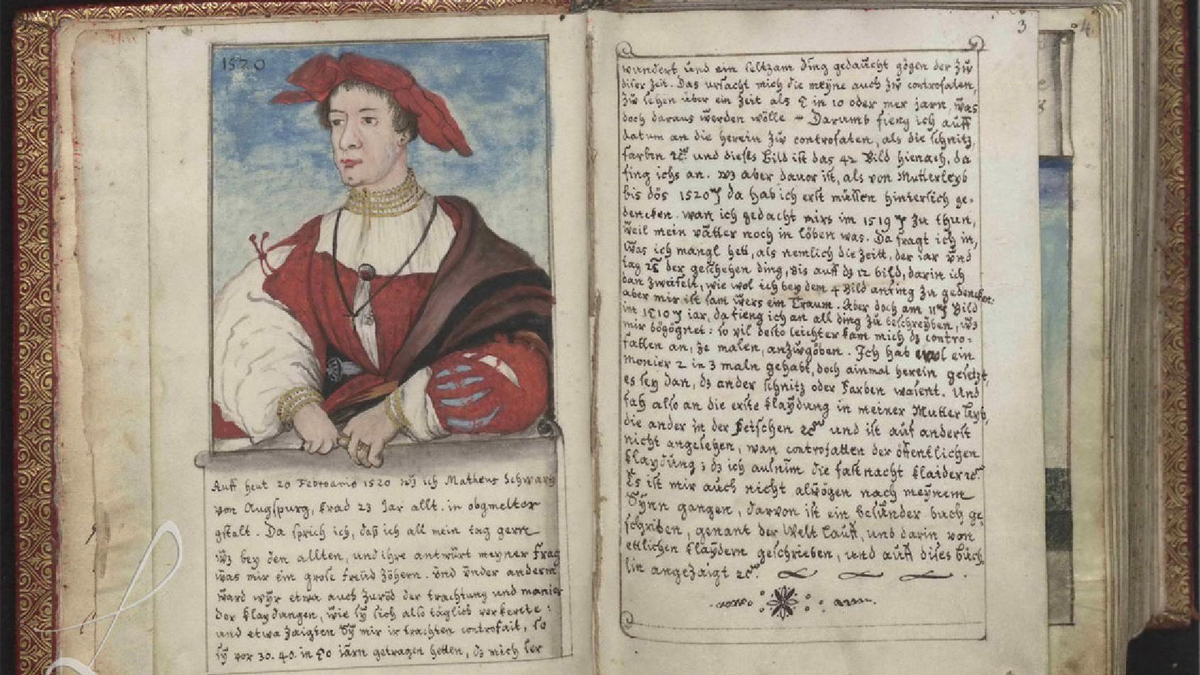 1520
Auff heut 20 Februario 1520 wz ich Matheus Schwarz
von Augspurg, krad 23 Jar allt. in obgmelter
gstalt. Da sprich ich, daß ich all mein tag gern
wz bey den allten, und ihre antwürt meyner frag
was mir ein große freüd zöhern. Und under anderm
ward wyr etwa auch zuröd der trachtung und manier
der klaydungen, wie sy sich also täglich verkerte:
und etwa zaigten sy mir ir trachten controfait, so
sy vor 30. 40. in 50 iärn getragen hetten, dz mich ser
3
4
wundert und ein seltzam ding gedaucht gögen der zü
diser zeit. Das ursacht mich die meyne auch zü controfaten,
zü sehen über ein zeit als 5 in 10 oder mer jarn, was
doch daraus werden wölle. Darumb fieng ich auff
datum an die herein zü controfaten, als die schnitz,
farben und dieses Bild ist das 42 Bild hienach, da
fing ichs an. wz aber davor ist, als von Mutterleyb
bis dös 1520 da hab ich erst müssen hinterlich ge-
dencken. wan ich gedacht mirs im 1519 zu thun,
weil mein vätter noch in löben was. Da fragt ich in,
was ich mangl hett, als nemlich die zeitt, der iar und
tag der geschehen ding, bis auff dz 12 bild, darin ich
dan zwäfelt, wie wol ich bey dem 4 Bild anfing zu gedencken
aber mir ist sam wers ein Traum. Aber doch am 11 Bild
im 1510 iar, da fieng ich an all ding zü beschreyben, wz
mir bögögnet: so vil desto leichter kam mich dz contro-
fatten an, ze malen, anzwgöben. Ich hab wol ein
monier 2 in 3 maln gehabt, doch ainmal herein gesetzt,
es sey dan, dz ander schnitz oder farben waient. Und
fach also an die erste klaydung in meiner Mutter leyb,
die ander in der Fetschen und ist auf anderst
nicht angesehen, wan controfatten der öffentlichen
klaydung; dz ich ausnim die fastnacht klaider
Es ist mir auch nicht alwögen nach meynem
Synn gangen, darvon ist ein besunder buch ge-
schriben, genant der Welt lauff, und darin von
ettlichen klaydern geschrieben, und auff dises büch
lin angezaigt